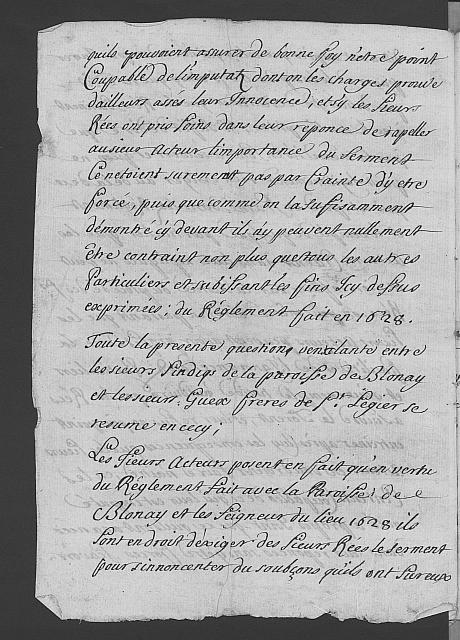 quils pouvoient assurer de bonne foy n'etre point
Coupable de limputat~ dont on les charges prouve
dailleurs assés leur Innocence, et sy les sieurs
Rées ont pris soins dans leur reponce de rapeller
au sieur Acteur limportance du Serment
Ce netoient surement pas par Crainte d'y etre
forcé, puis que comme on la suffisamment
démontré cy devant ils n'y peuvent nullement
être contraint non plus que tous les autres
Particuliers et subissant les fins Icy dessus
exprimées; du Réglement fait en 1628.
Toute la presente question, ventilante entre
les sieurs Sindiqs de la paroisse de Blonay
et les sieurs Guex freres de St. Légier se
resume en cecy;
Les Sieurs Acteurs posent en fait qu'en vertu
du Réglement fait avec la Paroisse de
Blonay et les Seigneur du lieu 1628 ils
sont en droit d'exiger des Sieurs Rées le serment
pour sinnoncenter du soubçons quils ont sur eux